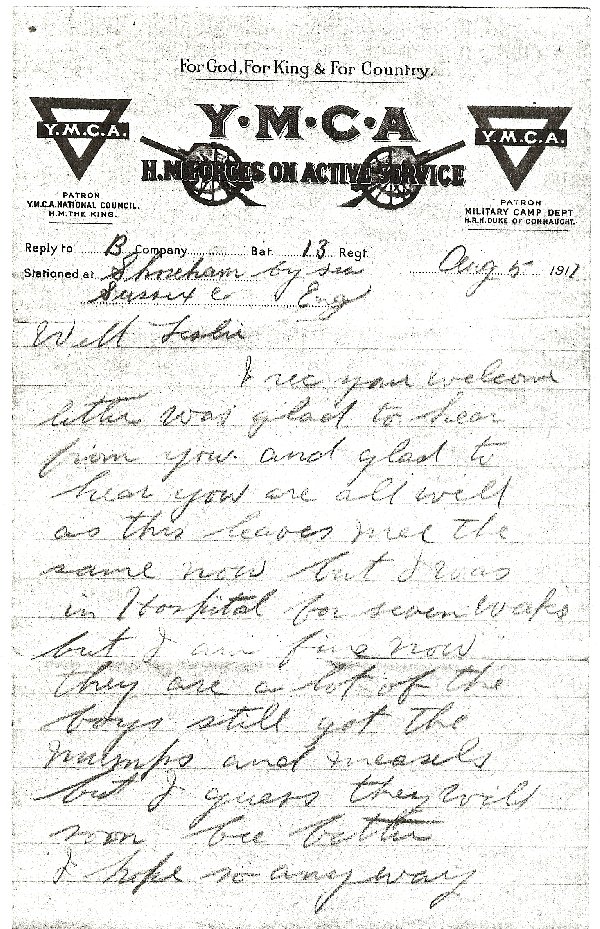 For God, For King & For Country.
Y·M·C·A
H.M. FORCES ON ACTIVE SERVICE
Y.M.C.A.
PATRON
Y.M.C.A. NATIONAL COUNCIL.
H.M. THE KING.
Y.M.C.A.
PATRON
MILITARY CAMP DEPT
H.R.H. DUKE OF CONNAUGHT.
Reply to B Company Bat. 13 Regt.
Stationed at Shoreham by sea Aug 5 1917
Sussex Eng
Well Leslie
I rec your welcome
letter was glad to hear
from you. and glad to
hear you are all well
as this leaves mee the
same now but I was
in Hospital for seven weaks
but I am fine now
they are a lot of the
boys still got the
mumps and measels
but I guess they will
soon bee better
I hope so any way